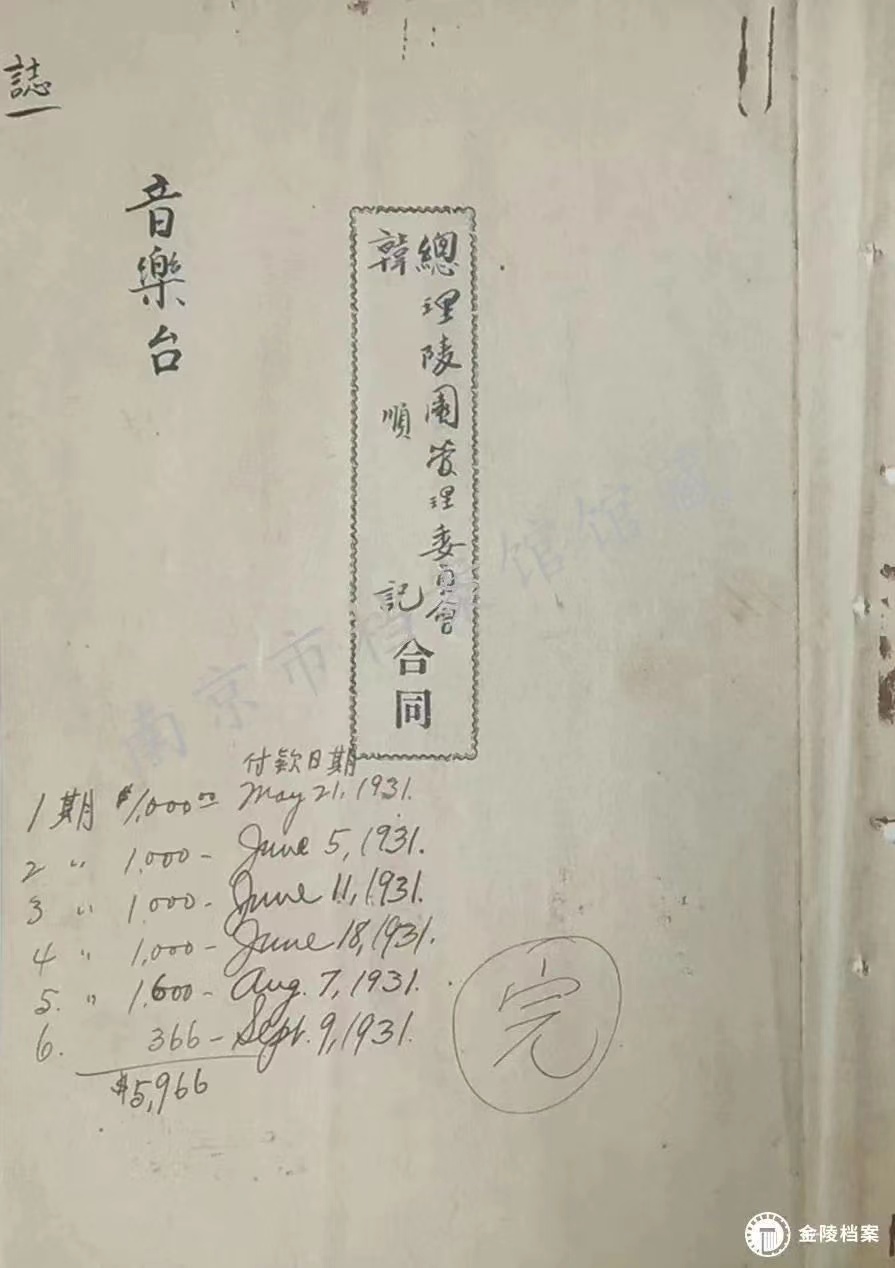 誌
音樂台
總理陵園管理委員會
韓順記
合同
付款日期
1期 $1,000.00 May 21, 1931.
2 〃 1,000 - June 5, 1931.
3 〃 1,000 - June 11, 1931.
4 〃 1,000 - June 18, 1931.
5. 〃 1,600 - Aug. 7, 1931.
6. 366 - Sept. 9, 1931.
$5,966
完
南京市档案馆馆藏
金陵档案